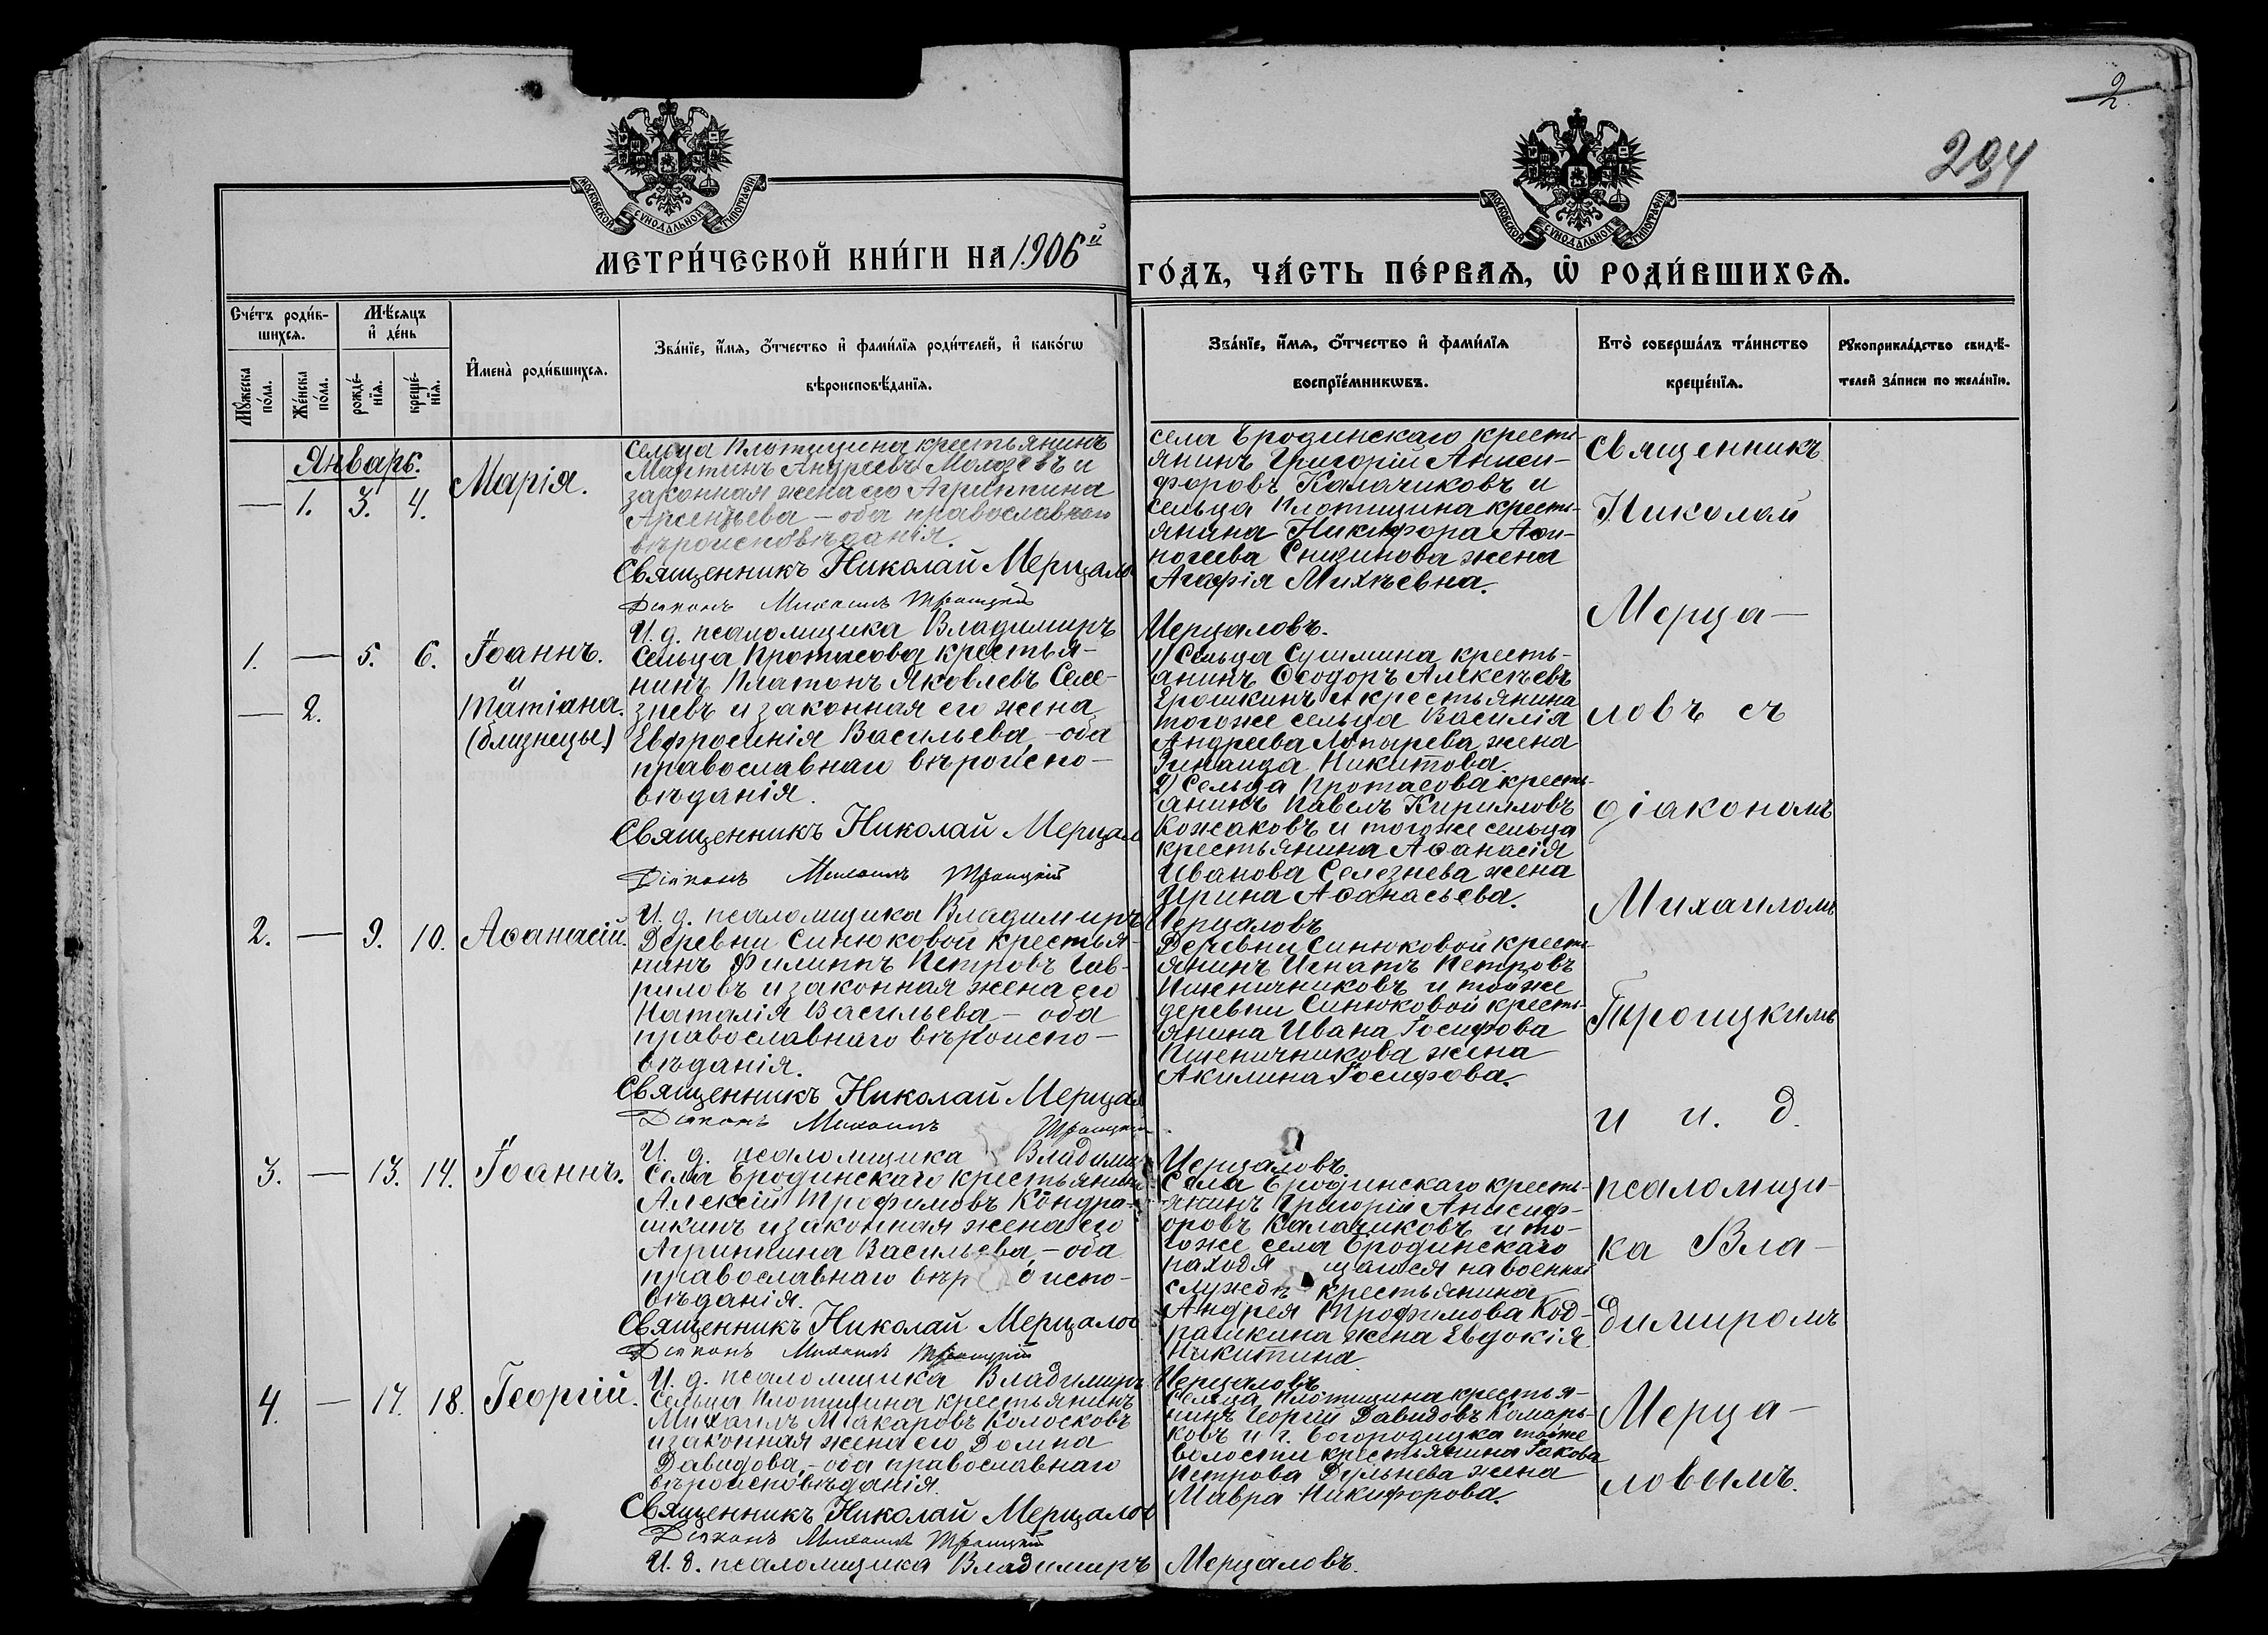 2
294
МОСКОВСКОЙ СѴНОДАЛЬНОЙ ТИПОГРАФІИ
МОСКОВСКОЙ СѴНОДАЛЬНОЙ ТИПОГРАФІИ
МЕТРИ́ЧЕСКОЙ КНИ́ГИ НА 1906й
ГО́ДЪ, ЧА́СТЬ ПЕ́РВАѦ, Ѡ҆ РОДИ́ВШИХСѦ.
Сче́тъ роди́в-
шихсѧ.
Мѣ́сяцъ
и҆ де́нь
Мꙋ́жеска
по́ла.
Же́нска
по́ла.
рожде́-
нїѧ.
креще́-
нїѧ.
И҆мена̀ роди́вшихсѧ.
Зва́нїе, и҆́мѧ, ѻ҆́тчество и҆ фами́лїѧ роди́телей, и҆ како́гѡ
вѣроисповѣ́данїѧ.
Зва́нїе, и҆́мѧ, ѻ҆́тчество и҆ фами́лїѧ
воспрїе́мникѡвъ.
Кто̀ соверша́лъ та́инство
креще́нїѧ.
Рꙋкоприкла́дство свидѣ́-
телей за́писи по жела́нїю.
Январь.
— 1. 3. 4.
Марія.
Сельца Плотицина крестьянинъ
Мартинъ Андреевъ и
законная жена его Агриппина
Арсентьева – оба православнаго
вѣроисповѣданія.
Священникъ Николай Мерцалов
Діаконъ Михаилъ Троицкій
И. д. псаломщика Владимиръ
села Бродинскаго кресть-
янинъ Григорій Аниси-
форовъ Калачиковъ и
сельца Плотицина кресть-
янина Никифора
жена
Агафія Михѣевна.
Мерцаловъ.
1. — 5. 6.
— 2.
Іоаннъ.
и
Татіана.
(близнецы)
Сельца Протасова крестья-
нинъ Платонъ Яковлевъ Селе-
зневъ и законная его жена
Евфросинія Васильева – оба
православнаго вѣроиспо-
вѣданія.
Священникъ Николай Мерцалов
Діаконъ Михаилъ Троицкій
И. д. псаломщика Владимиръ
1) Сельца Сушмина кресть-
янинъ Ѳеодоръ Алексѣевъ
Ерошкинъ и крестьянина
тогоже сельца Василія
Андреева Лопырева жена
Зинаида Никитова.
2) Сельца Протасова кресть-
янинъ Павелъ Кирилловъ
Кожаковъ и тогоже сельца
крестьянина Аѳанасія
Иванова Селезнева жена
Ирина Аѳанасьева.
Мерцаловъ
2. — 9. 10.
Аѳанасій.
Деревни Синюковой крестья-
нинъ Филиппъ Петровъ Гав-
риловъ и законная жена его
Наталія Васильева – оба
православнаго вѣроиспо-
вѣданія.
Священникъ Николай Мерцалов
Діаконъ Михаилъ Троицкій
И. д. псаломщика Владимиръ
Деревни Синюковой кресть-
янинъ Игнатъ Петровъ
Пшеничниковъ и тойже
деревни Синюковой кресть-
янина Ивана Іосифова
Пшеничникова жена
Акилина Іосифова.
Мерцаловъ
3. — 13. 14.
Іоаннъ.
Села Бродинскаго крестьянинъ
Алексій Трофимовъ Кондра-
шкинъ и законная жена его
Агриппина Васильева – оба
православнаго вѣроиспо-
вѣданія.
Священникъ Николай Мерцалов
Діаконъ Михаилъ Троицкій
И. д. псаломщика Владимиръ
Села Бродинскаго кресть-
янинъ Григорій Анисиф-
оровъ Калачиковъ и то-
гоже села Бродинскаго
находящагося на военной
службѣ крестьянина
Андрея Трофимова Код-
рашкина жена Евдокія
Никитина.
Мерцаловъ
4. — 17. 18.
Георгій.
Сельца Плотицина крестьянинъ
Михаилъ Макаровъ Колосковъ
и законная жена его Домна
Давидова, – оба православнаго
вѣроисповѣданія.
Священникъ Николай Мерцалов
Діаконъ Михаилъ Троицкій
И. д. псаломщика Владимиръ
Сельца Плотицина крестья-
нинъ Георгій Давидовъ Комарь-
ковъ и г. Богородицка тойже
волости крестьянина Іакова
Петрова Дульнева жена
Мавра Никифорова.
Мерцаловъ.
Священникъ
Николай
Мерца-
ловъ съ
діакономъ
Михаиломъ
Троицкимъ
и и. д.
псаломщи-
ка Вла-
димиромъ
Мерца-
ловымъ.